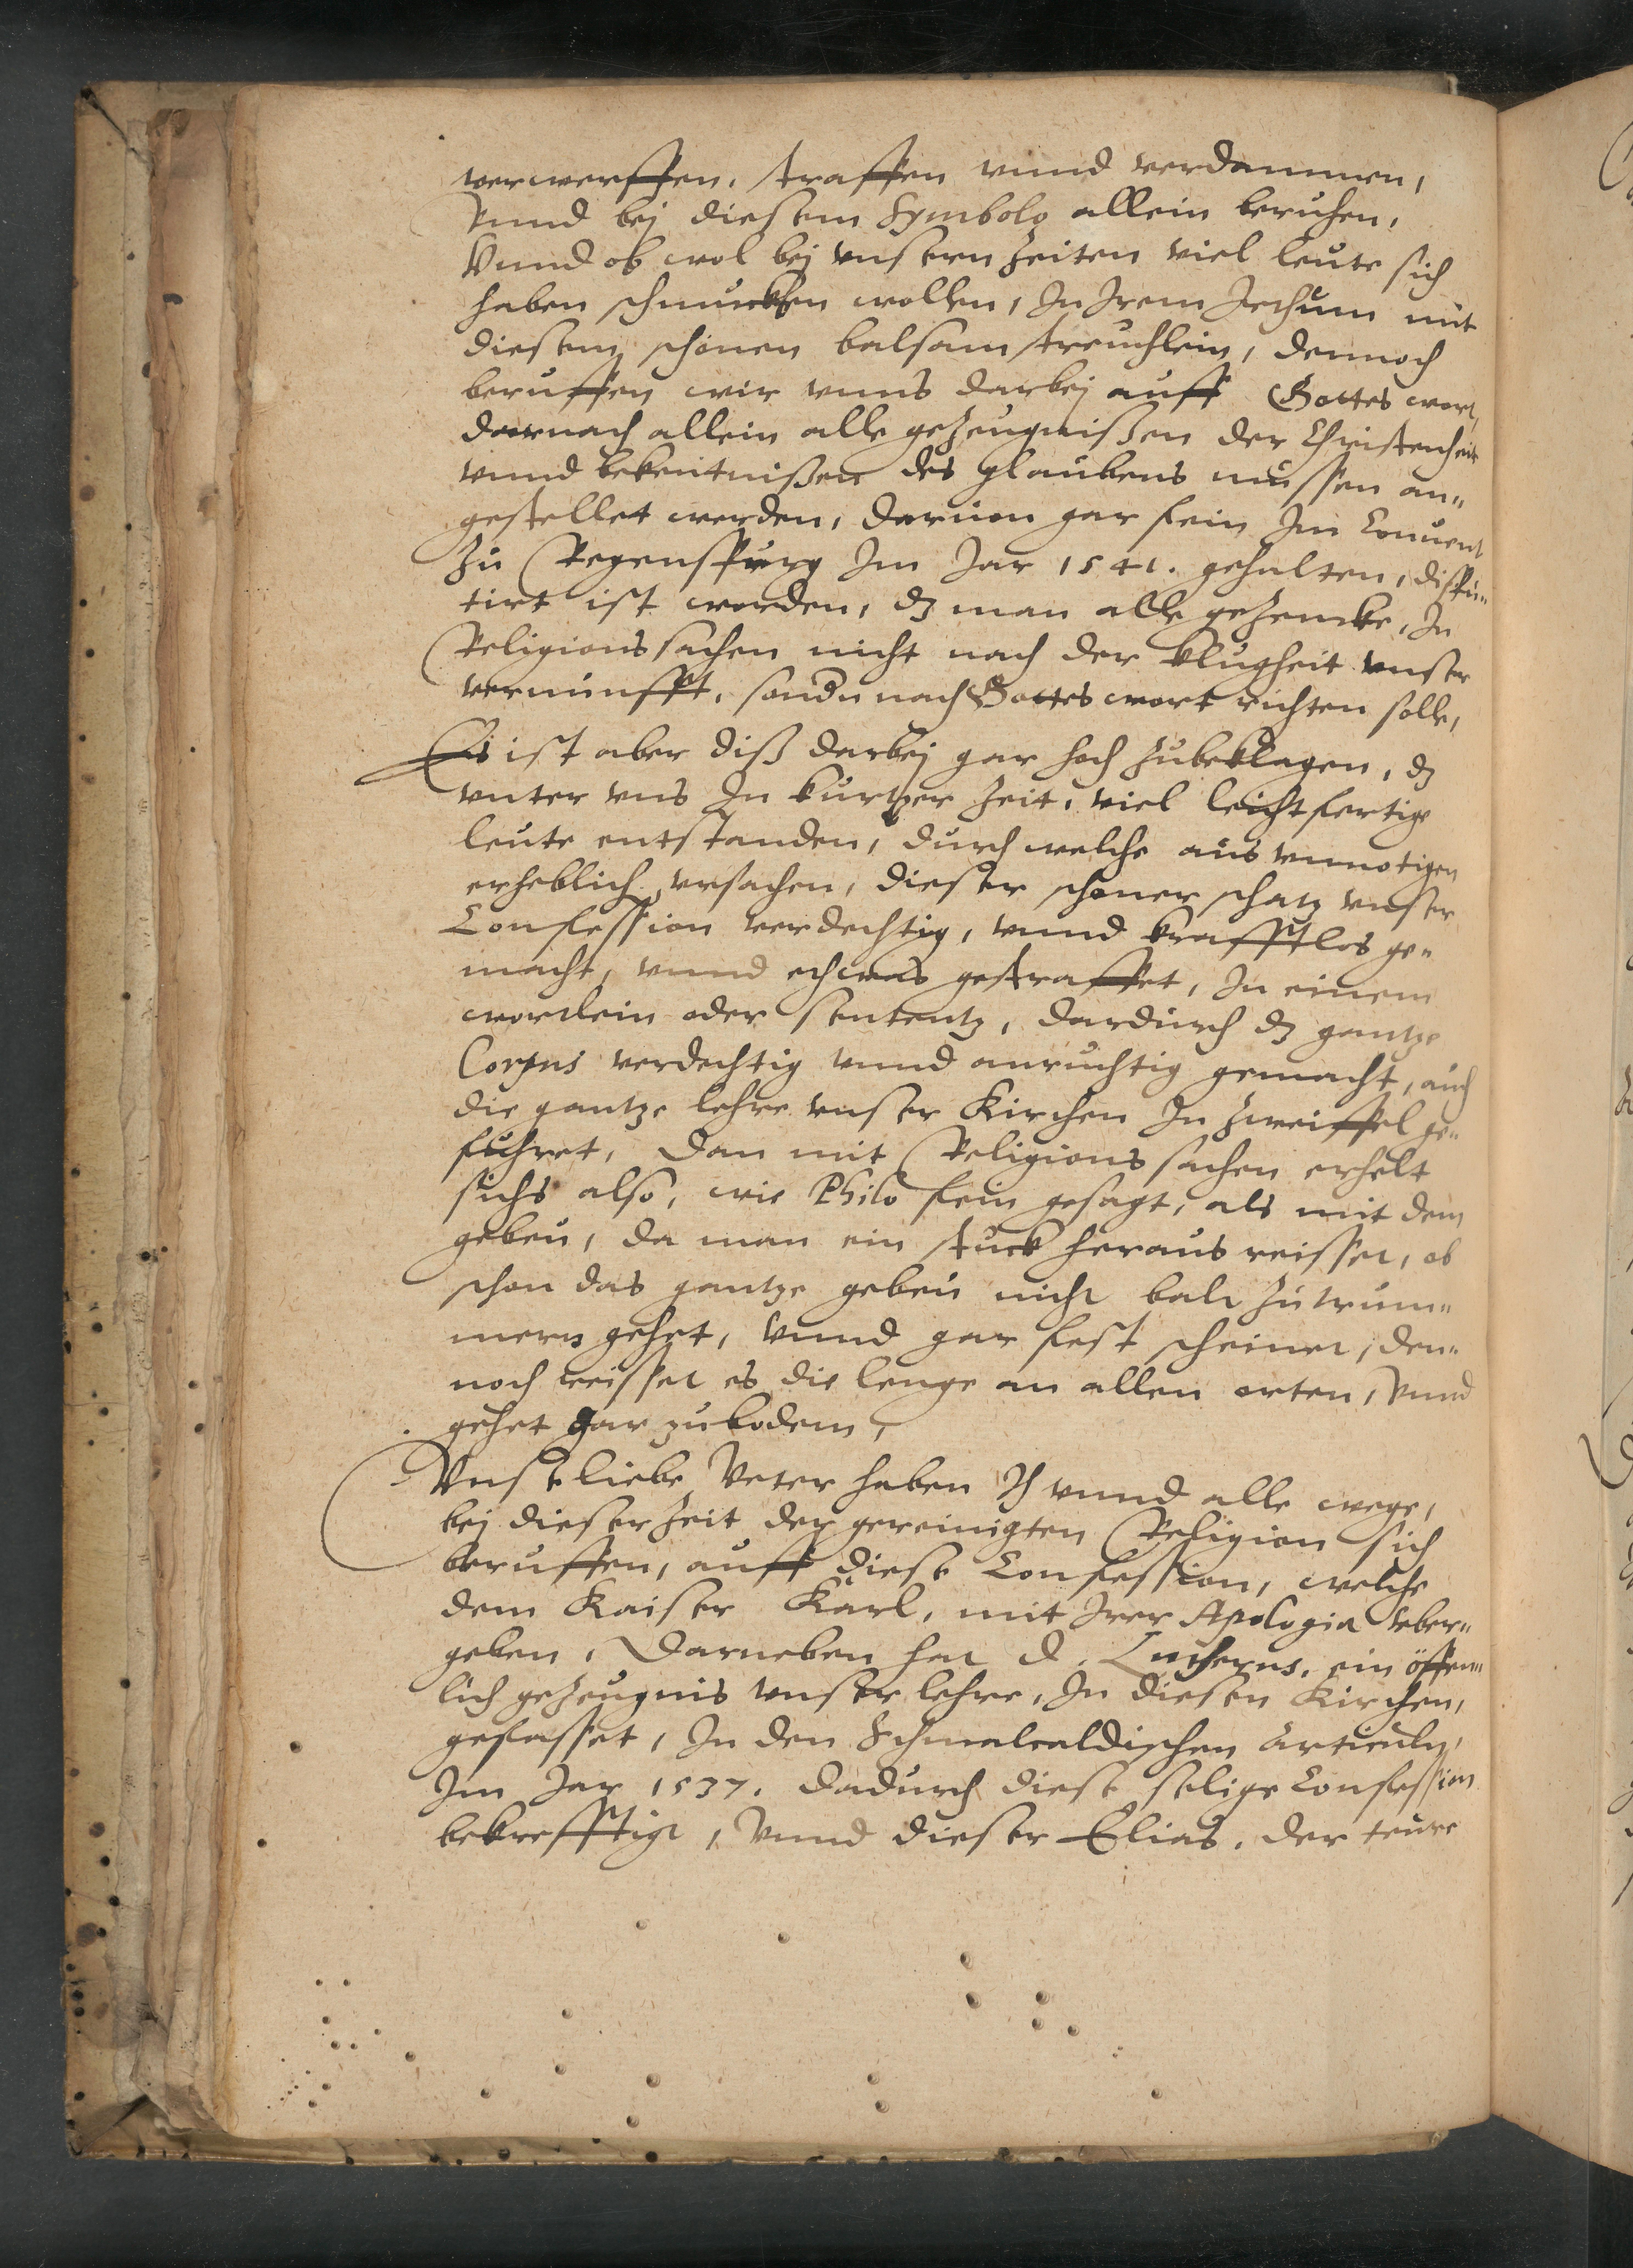 verwerffen, straffen vnnd verdammen,
Vnnd bej diesem Symbolo allein beruhen,
Vnnd ob wol bej vnsern Zeiten viel leute sich
haben schmucken wollen, In Irem Irthum mit
diesem schönen balsam streuchlein, dennoch
beruffen wir vnns darbej auff Gottes wort,
darnach allein alle geZeugnißen der Christenheit
vnnd bekentnißen des glaubens müssen an„
gestellet werden, daruon gar fein Im Conuent
Zu Regenspurg Im Jar 1541. gehalten, dispu„
tirt ist worden, dz man alle geZencke, In
Religionssachen nicht nach der klugheit vnser
vernunfft, sondn nach Gottes wort richten solle,
Es ist aber diß darbej gar hoch Zubeklagen, dz
vnter vns In kurtzer Zeit, viel leichtfertige
leute entstanden, durch welche aus vnnotigen
erheblich vrsachen, dieser schöner schatz vnser
Confession verdechtig, vnnd krafftlos ge„
macht, vnnd ethwas gestraffet, In einem
wortlein oder sententz, dardurch dz gantze
Corpus verdechtig vnnd anruchtig gemacht, auch
die gantze lehre vnser Kirchen In Zweiffel ge„
fuhret, Dan mit Religions sachen erhelt
sichs also, wie Philo fein gesagt, als mit dem
gebeu, da man ein stuck heraus reisset, ob
schon das gantze gebeu nicht balt Zutrum„
mern gehet, Vnnd gar fest scheinet, den„
noch reisset es die lenge an allen orten, Vnnd
gehet gar zubodem,
Vnse liebe Veter haben Ih vnnd alle wege,
bej dieser Zeit der gereinigten Religion sich
beruffen, auff diese Confession, welche
dem Kaiser Karl, mit Irer Apologia vber„
geben, Darneben hat D. Lutherus, ein öffen„
lich geZeugnis vnser lehre, In diesen Kirchen,
gefasset, In den Schmalcaldischen Articuln,
Im Jar 1537. dadurch diese selige Confession
bekrefftigt, Vnnd dieser Elias, der teure